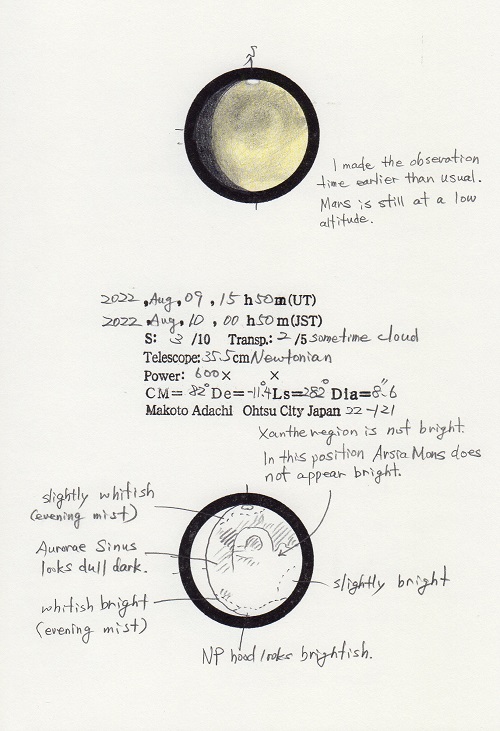 S
I made the obseration
time earlier than usual.
Mars is still at a low
altitude.
2022, Aug, 09, 15 h 50 m (UT)
2022, Aug, 10, 00 h 50 m (JST)
S: 3 /10 Transp.: 2 /5 sometime cloud
Telescope: 35.5 cm Newtonian
Power: 600 × ×
CM= 82° De= -11.4° Ls= 282° Dia= 8".6
Makoto Adachi Ohtsu City Japan 22-121
Xanthe region is not bright.
In this position Arsia Mons does
not appear bright.
slightly whitish
(evening mist)
Aurorae Sinus
looks dull dark.
whitish bright
(evening mist)
slightly bright
NP hood looks brightish.